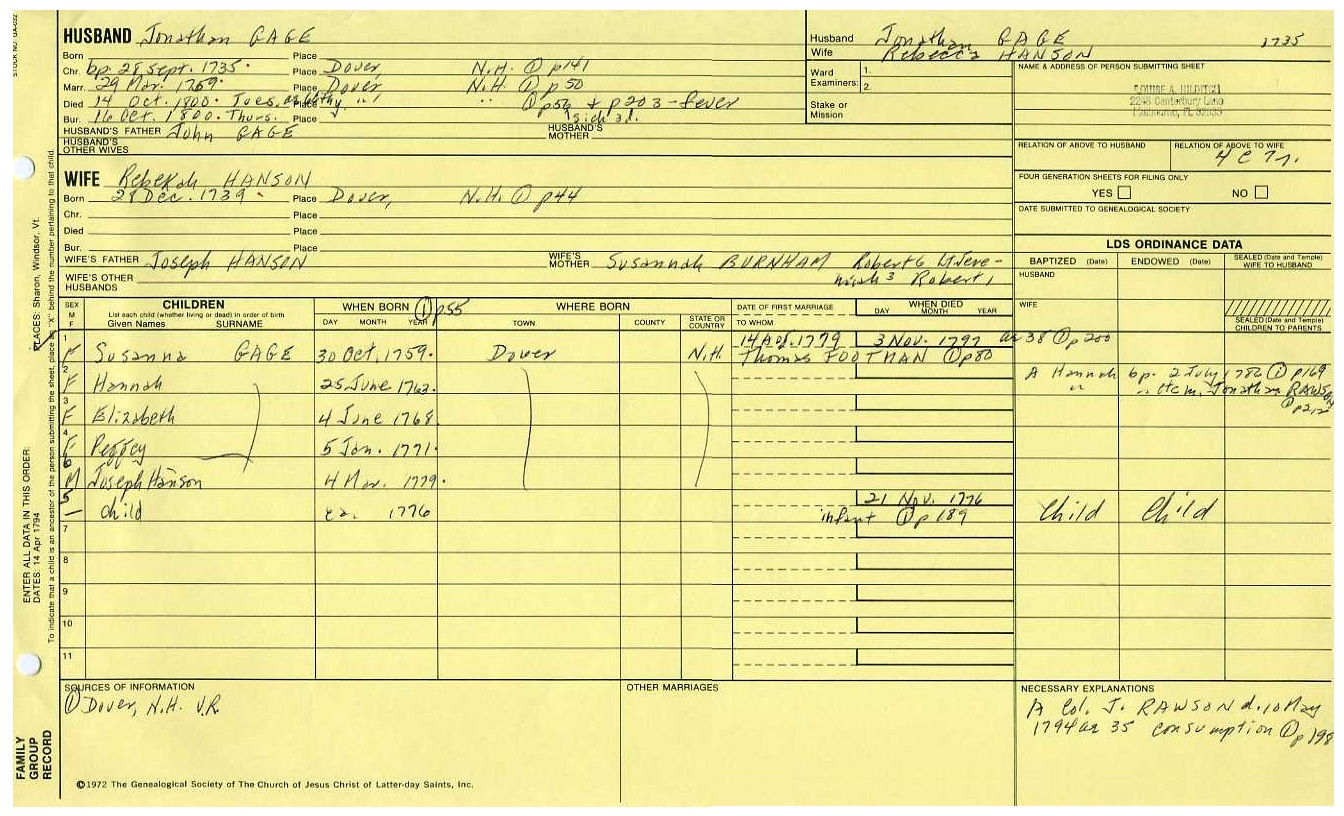 HUSBAND Jonathan GAGE
Born Place
Chr. bp. 28 Sept. 1735. Place Dover, N.H. ① p141
Marr. 29 Mar. 1759. Place Dover N.H. ① p50
Died 14 Oct. 1800. Tues. Place " " ① p56 + p203 - fever
Bur. 16 Oct. 1800. Thurs. Place sick 3d.
HUSBAND'S FATHER John GAGE HUSBAND'S MOTHER
HUSBAND'S OTHER WIVES
Husband Jonathan GAGE 1735
Wife Rebecca HANSON
Ward Examiners: 1.
2.
Stake or Mission
NAME & ADDRESS OF PERSON SUBMITTING SHEET
LOUISE A. HILDITCH
2248 Canterbury Lane
RELATION OF ABOVE TO HUSBAND RELATION OF ABOVE TO WIFE
4 C 7r.
FOUR GENERATION SHEETS FOR FILING ONLY
YES NO
DATE SUBMITTED TO GENEALOGICAL SOCIETY
WIFE Rebekah HANSON
Born 28 Dec. 1739. Place Dover, N.H. ① p44
Chr. Place
Died Place
Bur. Place
WIFE'S FATHER Joseph HANSON WIFE'S MOTHER Susannah BURNHAM Robert6
Robert1
WIFE'S OTHER HUSBANDS
LDS ORDINANCE DATA
BAPTIZED (Date) ENDOWED (Date) SEALED (Date and Temple) WIFE TO HUSBAND
HUSBAND
WIFE
SEALED (Date and Temple) CHILDREN TO PARENTS
SEX M F CHILDREN List each child (whether living or dead) in order of birth Given Names SURNAME WHEN BORN ① p55 DAY MONTH YEAR WHERE BORN TOWN COUNTY STATE OR COUNTRY DATE OF FIRST MARRIAGE TO WHOM WHEN DIED DAY MONTH YEAR
1 14 1779 3 Nov. 1797 ae 38 ① p200
F Susanna GAGE 30 Oct. 1759. Dover N.H. Thomas FOOTMAN ① p80
2 F Hannah 25 June 1763. A Hannah bp. 2 July 1786 ① p169
" " Jonathan RAWSON
3 F Elizabeth 4 June 1768.
4 F Peggey 5 Jan. 1771.
6 M Joseph Hanson 4 Mar. 1779.
5 21 Nov. 1776
— child ca. 1776 infant ① p189 Child Child
7
8
9
10
11
SOURCES OF INFORMATION
① Dover, N.H. V.R.
OTHER MARRIAGES
NECESSARY EXPLANATIONS
A Col. J. RAWSON d. 10 May
1794 ae 35 consumption ① p198
©1972 The Genealogical Society of The Church of Jesus Christ of Latter-day Saints, Inc.
FAMILY GROUP RECORD
ENTER ALL DATA IN THIS ORDER:
DATES: 14 Apr 1794
PLACES: Sharon, Windsor, Vt.
To indicate that a child is an ancestor of the person submitting the sheet, place an "X" behind the number pertaining to that child.